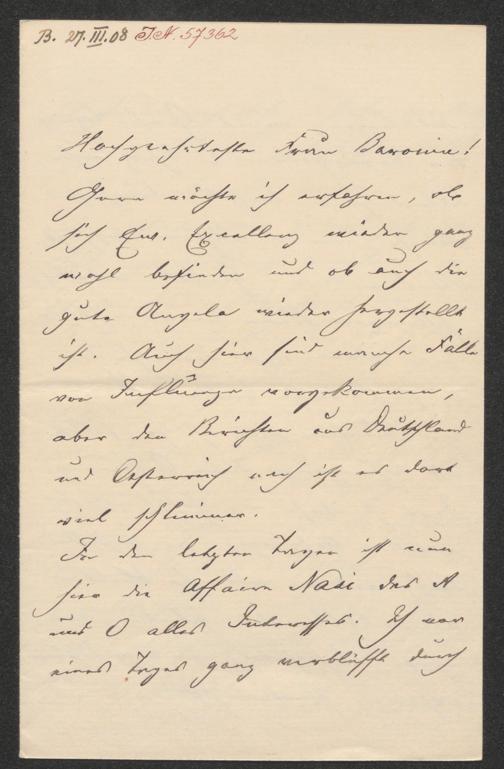 B. 27.III.08 I.N. 57362
Hochgeehrteste Frau Baronin!
Gern möchte ich erfahren, ob
sich Eur. Excellenz wieder ganz
wohl befinden und ob auch die
gute Angela wieder hergestellt
ist. Auch hier sind manche Fälle
von Influenza vorgekommen,
aber den Berichten aus Deutschland
und Oesterreich nach ist es dort
viel schlimmer.
In den letzten Tagen ist nun
hier die Affaire Nasi das A
und O alles Interesses. Ich war
eines Tages ganz verblüfft durch